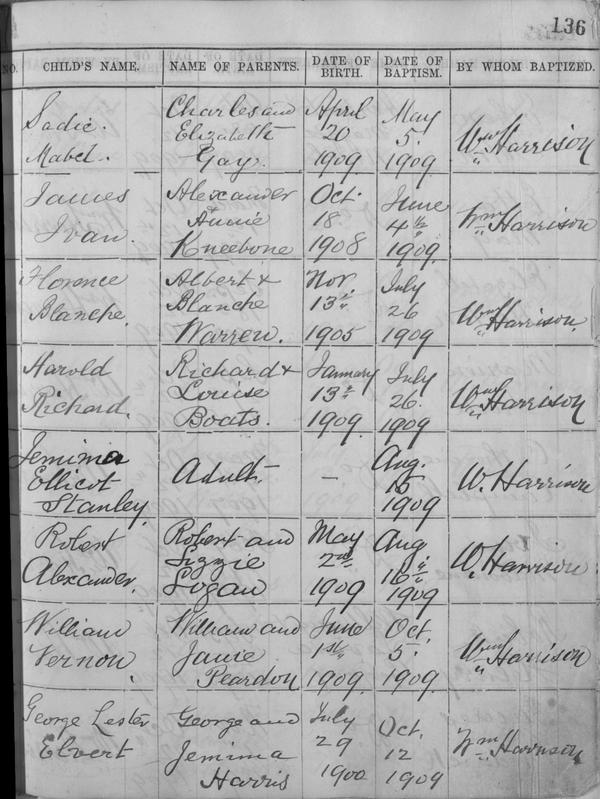 136
NO. CHILD'S NAME. NAME OF PARENTS. DATE OF BIRTH. DATE OF BAPTISM. BY WHOM BAPTIZED.
Sadie. Charles and April May
Mabel. Elizabeth 20 5. Wm Harrison
Gay. 1909 1909
James Alexander Oct. June
Ivan. & Annie 18. 4th Wm Harrison
Kneebone 1908 1909.
Florence Albert & Nov. July
Blanche. Blanche 13th 26 Wm Harrison.
Warren. 1905 1909
Harold Richard & January July
Richard. Louise 13th 26. Wm Harrison
Boats. 1909. 1909
Jemima Aug.
Ellicot Adult. – 15 W. Harrison
Stanley. 1909
Robert Robert and May Aug.
Alexander. Lizzie 2nd 16th W. Harrison
Logan 1909 1909
William William and June Oct.
Vernon. Janie 1st 5. Wm Harrison
Peardon 1909. 1909.
George Lester George and July Oct.
Elvert Jemima 29 12 Wm Harrison
Harris 1900 1909